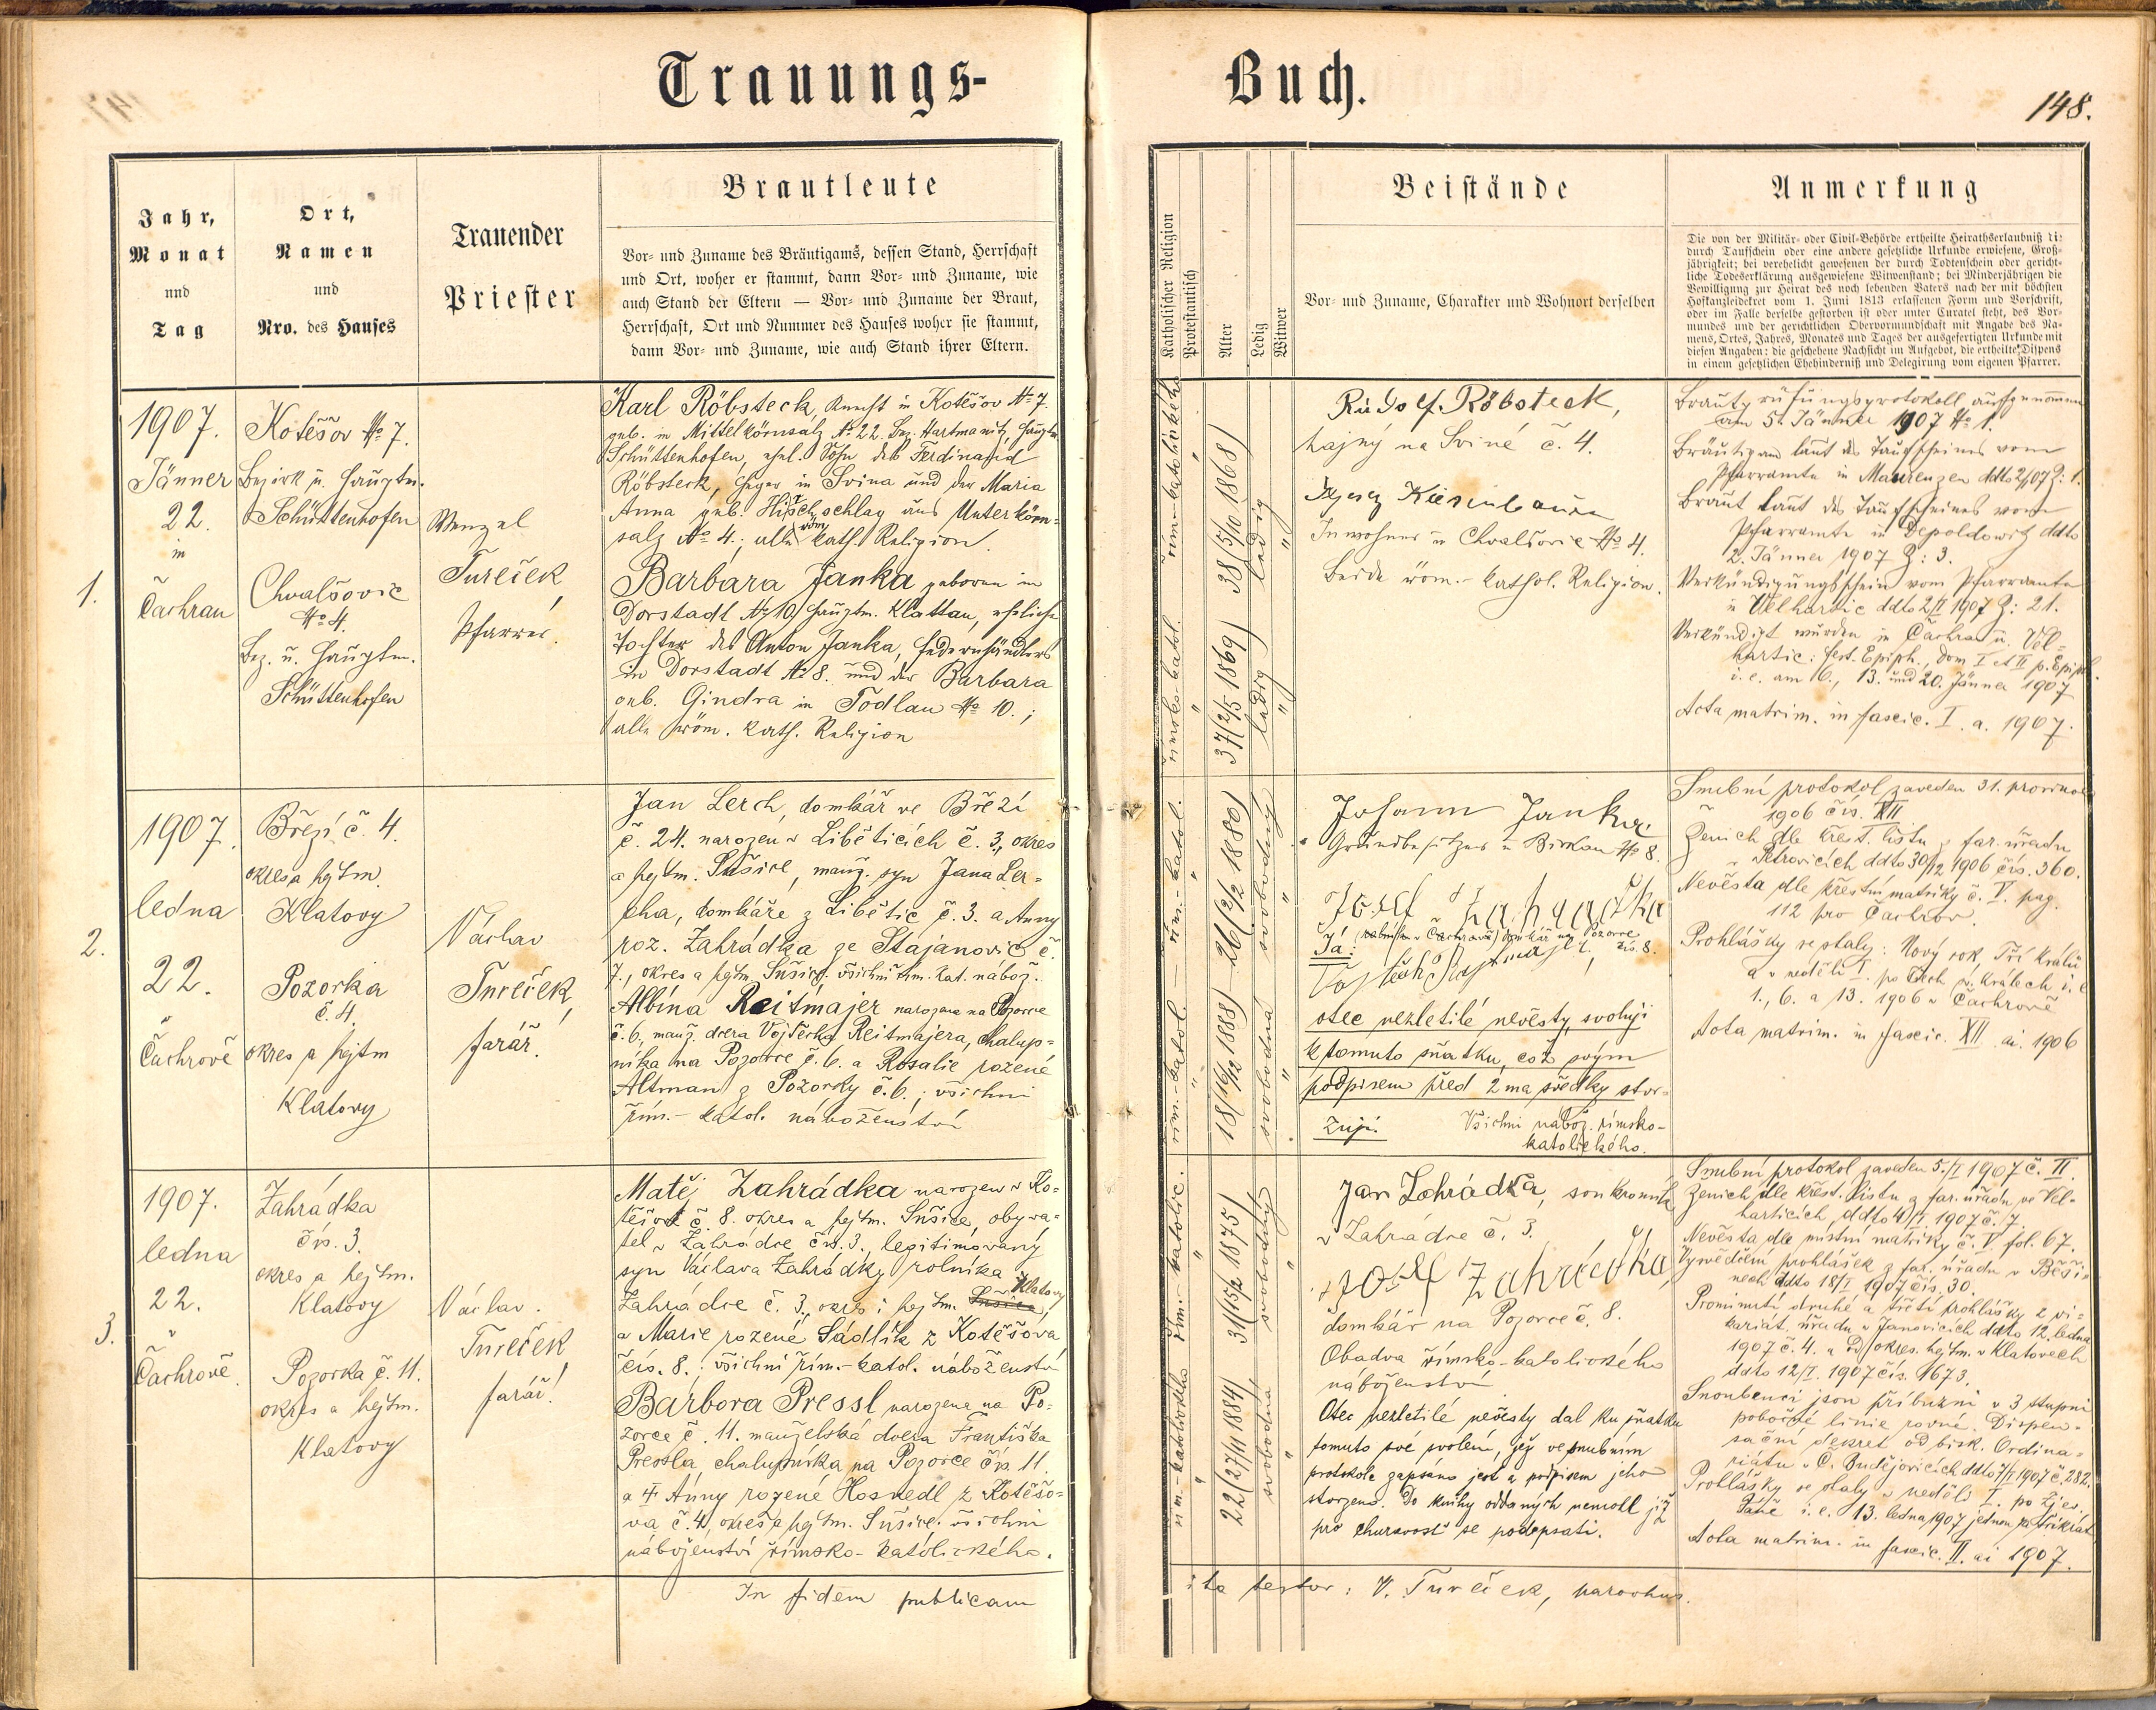 Trauungs-
Buch.
148.
Jahr,
Monat
und
Tag
Ort,
Namen
und
Nro. des Hauses
Trauender
Priester
Brautleute
Vor- und Zuname des Bräutigams, dessen Stand, Herrschaft
und Ort, woher er stammt, dann Vor- und Zuname, wie
auch Stand der Eltern — Vor- und Zuname der Braut,
Herrschaft, Ort und Nummer des Hauses woher sie stammt,
dann Vor- und Zuname, wie auch Stand ihrer Eltern.
Katholischer Religion
Protestantisch
Alter
Ledig
Witwer
Beistände
Vor- und Zuname, Charakter und Wohnort derselben
Anmerkung
Die von der Militär- oder Civil-Behörde ertheilte Heirathserlaubniß di:
durch Taufschein oder eine andere gesetzliche Urkunde erwiesene, Groß-
jährigkeit; bei verehelicht gewesenen der durch Todtenschein oder gericht-
liche Todeserklärung ausgewiesene Witwenstand; bei Minderjährigen die
Bewilligung zur Heirat des noch lebenden Vaters nach der mit höchsten
Hofkanzleidekret vom 1. Juni 1813 erlassenen Form und Vorschrift,
oder im Falle derselbe gestorben ist oder unter Curatel steht, des Vor-
mundes und der gerichtlichen Obervormundschaft mit Angabe des Na-
mens, Ortes, Jahres, Monates und Tages der ausgefertigten Urkunde mit
diesen Angaben: die geschehene Nachsicht im Aufgebot, die ertheilte Dispens
in einem gesetzlichen Ehehinderniß und Delegirung vom eigenen Pfarrer.
1.
1907.
Jänner
22.
in
Čachrau
Kotěšov No 7.
Bezirk u. Hauptm.
Schüttenhofen
Chvalšovic
No 4.
Bez. u. Hauptm.
Schüttenhofen
Wenzel
Tureček,
Pfarrer.
Karl Röbsteck, Knecht in Kotěšov No 7.
geb. in Mittelkörnsalz No 22. Bez. Hartmanitz, Hauptm.
Schüttenhofen, ehel. Sohn des Ferdinand
Röbsteck, Heger in Svina und der Maria
Anna geb. Hirschschlag aus Unterkörn-
salz No 4.; alle röm. kath. Religion.
Barbara Janka geboren in
Dorstadt No 10, Hauptm. Klattau, eheliche
Tochter des Anton Janka, Federnhändlers
in Dorstadt No 8. und der Barbara
geb. Gindra in Todlau No 10.;
alle röm. kath. Religion
38 (5/10 1868)
ledig
37 (2/5 1869)
ledig
Rudolf Röbsteck,
hajný na Sviné č. 4.
Inwohner in Chvalšovic No 4.
Beide röm.-kathol. Religion.
Brautprüfungsprotokoll aufgenommen
am 5. Jänner 1907 No 1.
Bräutigam laut des Taufscheines vom
Pfarramte in Maurenzen ddto 2/1 07 Z: 1.
Braut laut des Taufscheines vom
Pfarramte in Depoldowitz ddto
2. Jänner 1907 Z: 3.
Verkündigungsschein vom Pfarramte
in Velhartic ddto 2/II 1907 Z: 21.
Verkündigt wurden in Čachrau u. Vel-
hartic: fest. Epiph., Dom I et II p. Epiph.
i. e. am 6., 13. und 20. Jänner 1907
Acta matrim. in fascic. I. a. 1907.
2.
1907.
ledna
22.
v
Čachrově
Březí č. 4.
okres a hejtm.
Klatovy
Pozorka
č. 4.
okres a hejtm
Klatovy
Václav
Tureček,
farář.
Jan Lerch, domkář ve Březí
č. 24. narozen v Liběticích č. 3., okres
a hejtm. Sušice, manž. syn Jana Ler-
cha, domkáře z Libětic č. 3. a Anny
roz. Zahrádka ze Stajanovic č.
7., okres a hejtm. Sušice; všichni řím. kat. nábož.
Albína Reitmajer narozena na Pozorce
č. 6, manž. dcera Vojtěcha Reitmajera, chalup-
níka na Pozorce č. 6. a Rosalie rozené
Altman z Pozorky č. 6.; všichni
řím.- katol. náboženství
26 (2/2 1880)
svobodný
18 (16/12 1888)
svobodná
Johann Janka
Grundbesitzer in Birkau No 8.
Josef Zahrádka
domkář na Pozorce čís. 8.
Já:
Vojtěch Rajtmajer
otec nezletilé nevěsty svoluji
k tomuto sňatku, což svým
podpisem před 2ma svědky stvr-
zuji.
Všichni nábož. římsko-
katolického.
Snubní protokol zaveden 31. prosince
1906 čís. XII
Ženich dle křest. listu z far. úřadu
v Petrovicích ddto 30/12 1906 čís. 360.
Nevěsta dle křestní matriky č. V. pag.
112 pro Čachrov.
Prohlášky se staly: Nový rok, Tří králů
a v neděli I. po Třech králech i. e
1., 6. a 13. 1906 v Čachrově
Acta matrim. in fascic. XII ai. 1906
3.
1907.
ledna
22.
v
Čachrově.
Zahrádka
čís. 3.
okres a hejtm.
Klatovy
Pozorka č. 11.
okres a hejtm.
Klatovy
Václav.
Tureček
farář.
Matěj Zahrádka narozen v Ko-
těšově č. 8. okres a hejtm. Sušice, obyva-
tel v Zahrádce čís. 3., legitimovaný
syn Václava Zahrádky, rolníka v
Zahrádce č. 3., okres i hejtm. Sušice Klatovy
a Marie rozené Sádlík z Kotěšova
čís. 8.; všichni řím.-katol. náboženství
Barbora Pressl narozena na Po-
zorce č. 11. manželská dcera Františka
Pressla, chalupníka na Pozorce čís. 11.
a Anny rozené Hosnedl z Kotěšo-
va č. 4, okres a hejtm. Sušice. všichni
náboženství římsko-katolického.
31 (15/2 1875)
svobodný
22 (27/11 1884)
svobodná
Jan Zahrádka, soukromník
v Zahrádce č. 3.
Josef Zahrádka
domkář na Pozorce č. 8.
Obadva římsko-katolického
náboženství
Otec nezletilé nevěsty dal ku sňatku
tomuto své svolení, jež ve snubním
protokole zapsáno jest a podpisem jeho
stvrzeno. Do knihy oddaných nemohl již
pro churavost se podepsati.
Snubní protokol zaveden 5./I 1907 č. II.
Ženich dle křest. listu z far. úřadu ve Vel-
harticích, ddto 4/I 1907 č. 7.
Nevěsta dle místní matriky č. V. fol. 67.
Vysvědčení prohlášek z far. úřadu v Běši-
nech ddto 18/I 1907 čís. 30.
Prominutí druhé a třetí prohlášky z vi-
kariát. úřadu v Janovicích ddto 12. ledna
1907 č. 4. a od okres. hejtm. v Klatovech
ddto 12/I. 1907 čís. 1673.
Snoubenci jsou příbuzní v 3 stupni
pobočné linie rovné. Dispen-
sační dekret od bisk. Ordina-
riátu v Č. Budějovicích ddto 7/I 1907 č. 282.
Prohlášky se staly v neděli I. po Zjev.
Páně i. e. 13. ledna 1907 jednou za třikrát
Acta matrim. in fascic. II. ai 1907.
In fidem publicam
ita testor: V. Tureček, parochus.